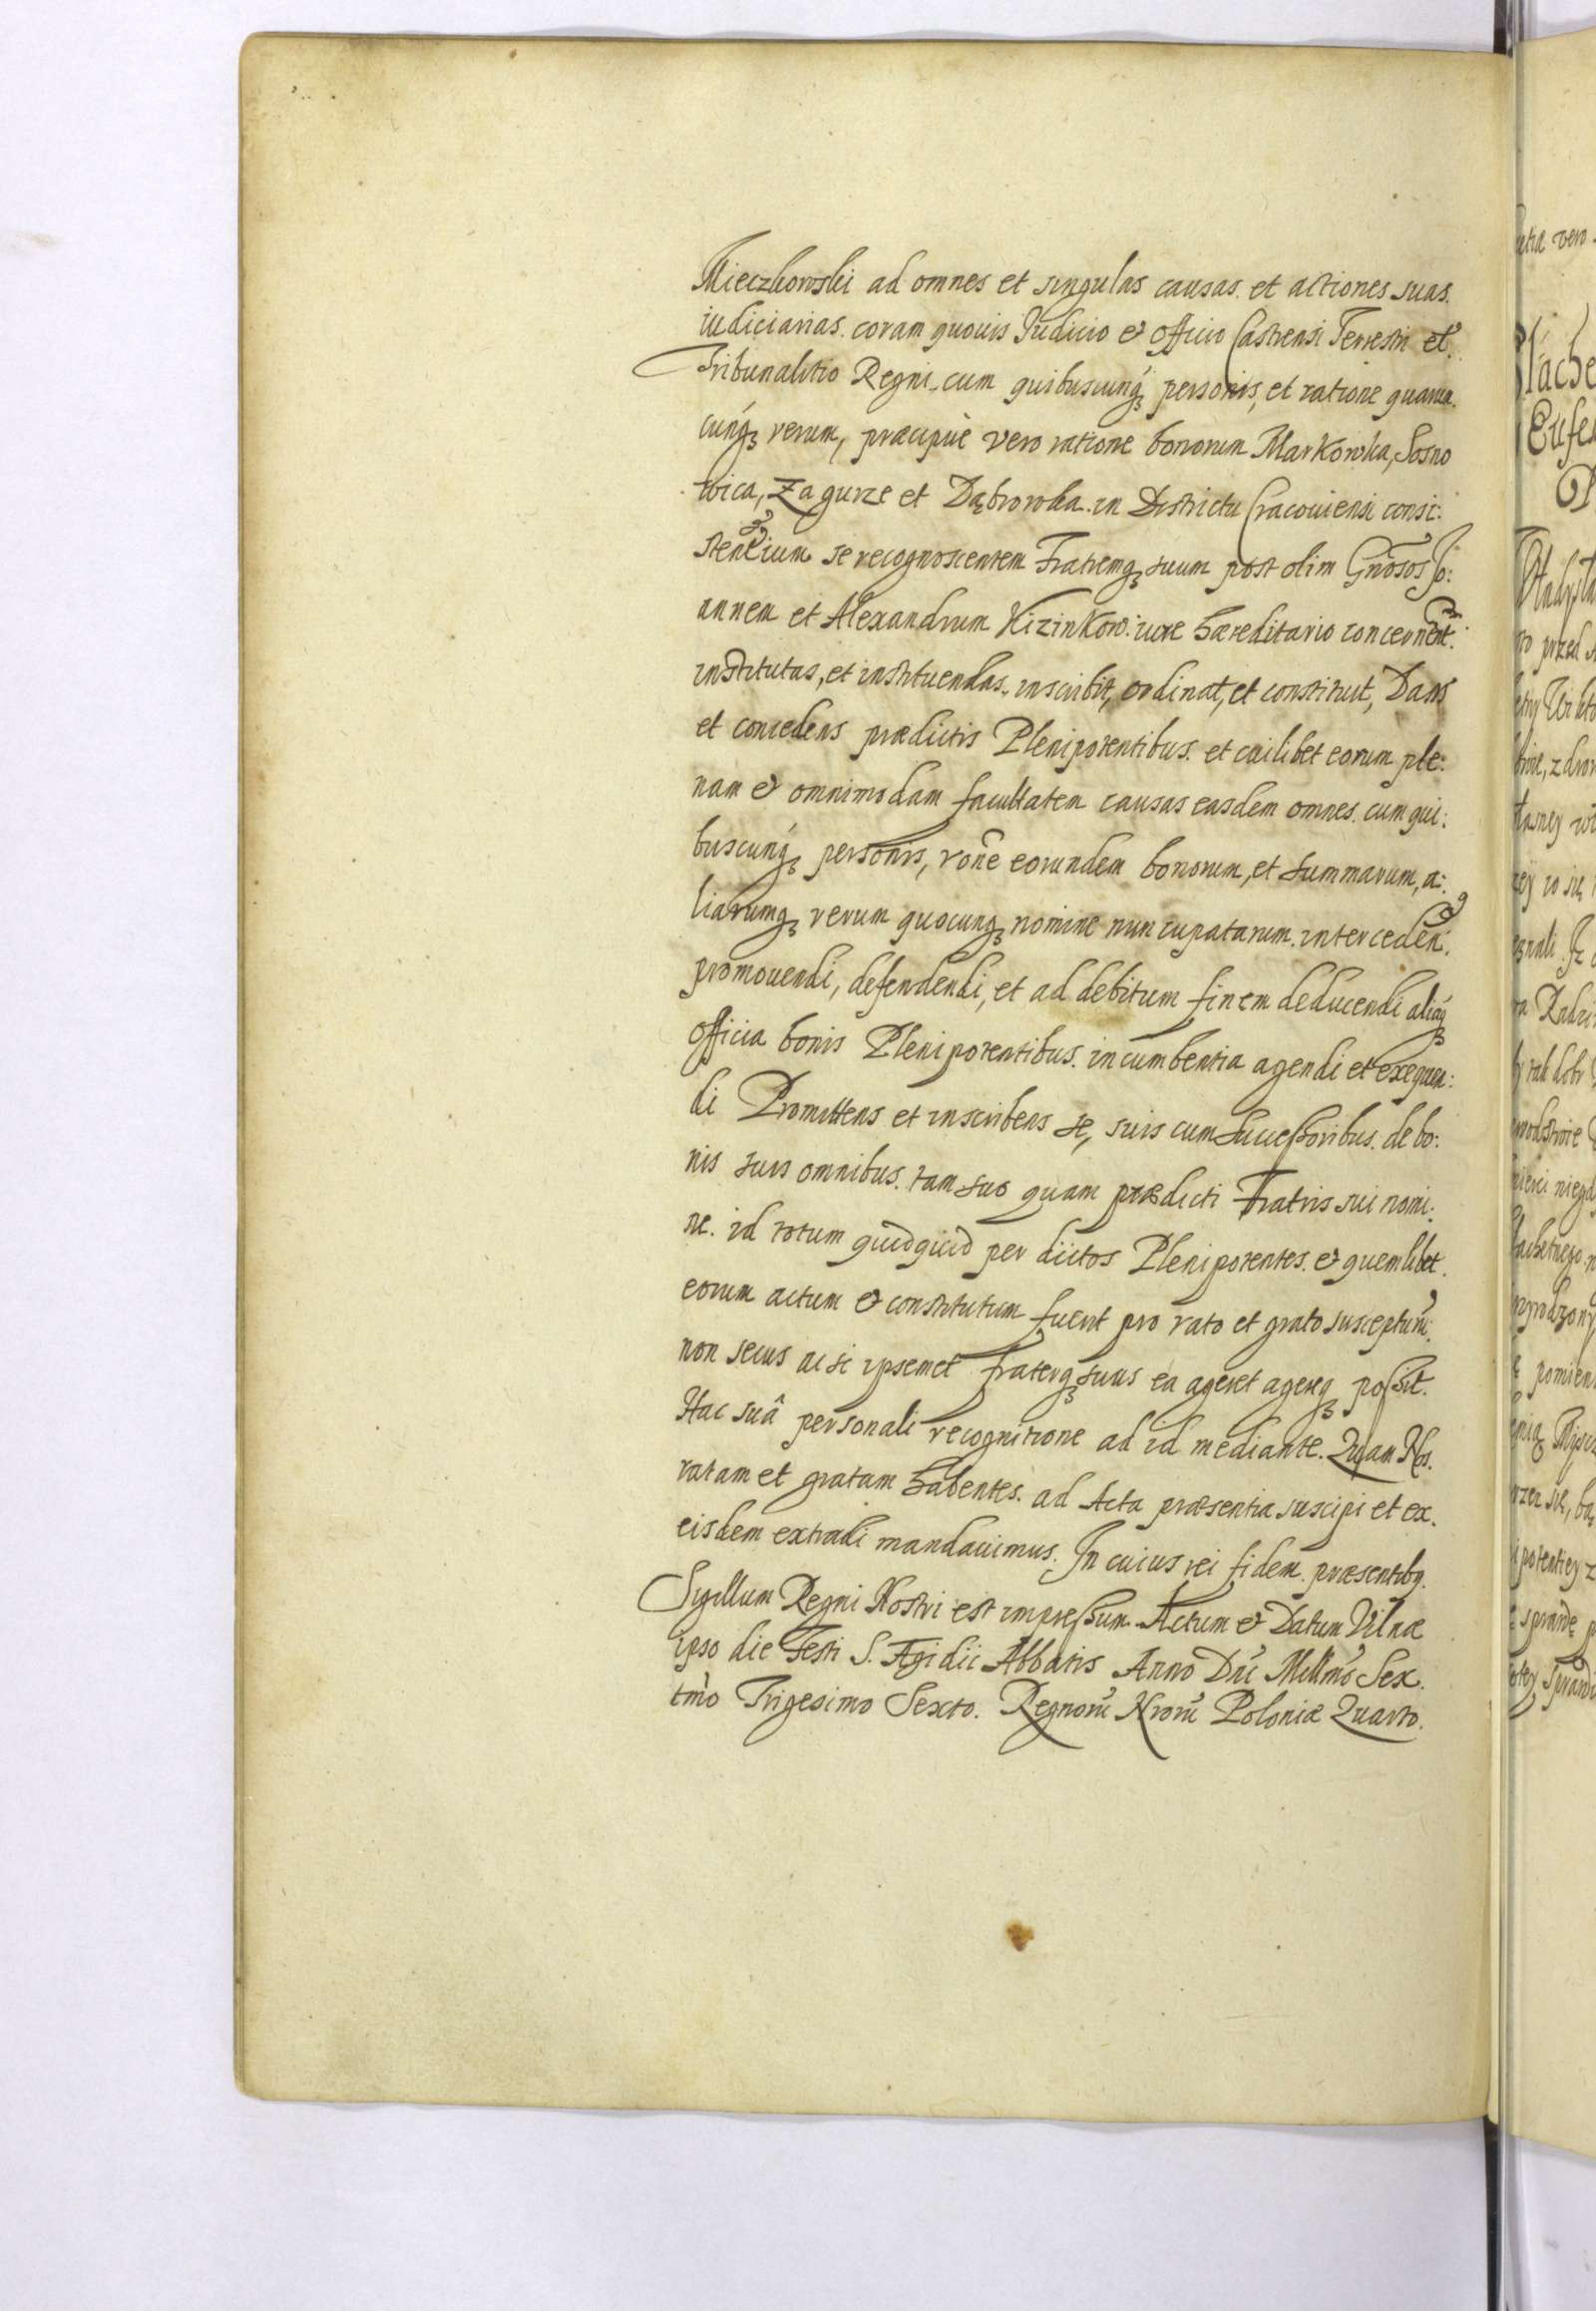 Mieczkowski ad omnes et singulas causas et actiones suas
iudiciarias coram quouis Judicio et Officio Castrensi Terrestri et
Tribunalitio Regni cum quibuscunq; personis, et ratione quarum
cunq; rerum, præcipuè vero ratione bonorum Markowka, Sosno
wica, Zagurze et Dąbrowka in Districtu Cracouiensi consi:
stentium se recognoscentem Fratremq; suum post olim Gnosos Jo:
annem et Alexandrum Kizinkow: iure hæreditario concernent.
institutas, et instituendas, inscribit, ordinat, et constituit, Dans
et concedens prædictis Plenipotentibus et cuilibet eorum ple:
nam et omnimodam facultatem causas easdem omnes cum qui:
buscunq; personis, rone eorundem bonorum, et summarum, a:
liarumq; rerum quocunq; nomine nuncupatarum interceden.
promouendi, defendendi, et ad debitum finem deducendi aliaq;
officia bonis Plenipotentibus incumbentia agendi et exequen:
di Promittens et inscribens se, suis cum successoribus de bo:
nis suis omnibus tam suo quam prædicti Fratris sui nomi:
ne id totum quidquid per dictos Plenipotentes et quemlibet
eorum actum et constitutum fuerit pro rato et grato suscepturū
non secus ac si ipsemet fraterq; suus ea ageret agereq; possit.
Hac suâ personali recognitione ad id mediante. Quam Nos
ratam et gratam habentes ad Acta præsentia suscipi et ex
eisdem extradi mandauimus. In cuius rei fidem præsentibq
Sigillum Regni Nostri est impressum. Actum et Datum Vilnæ
ipso die Festi S. Ægidii Abbatis Anno Dni Millmo Sex
tmo Trigesimo Sexto. Regnorū Nrorū Poloniæ Quarto.